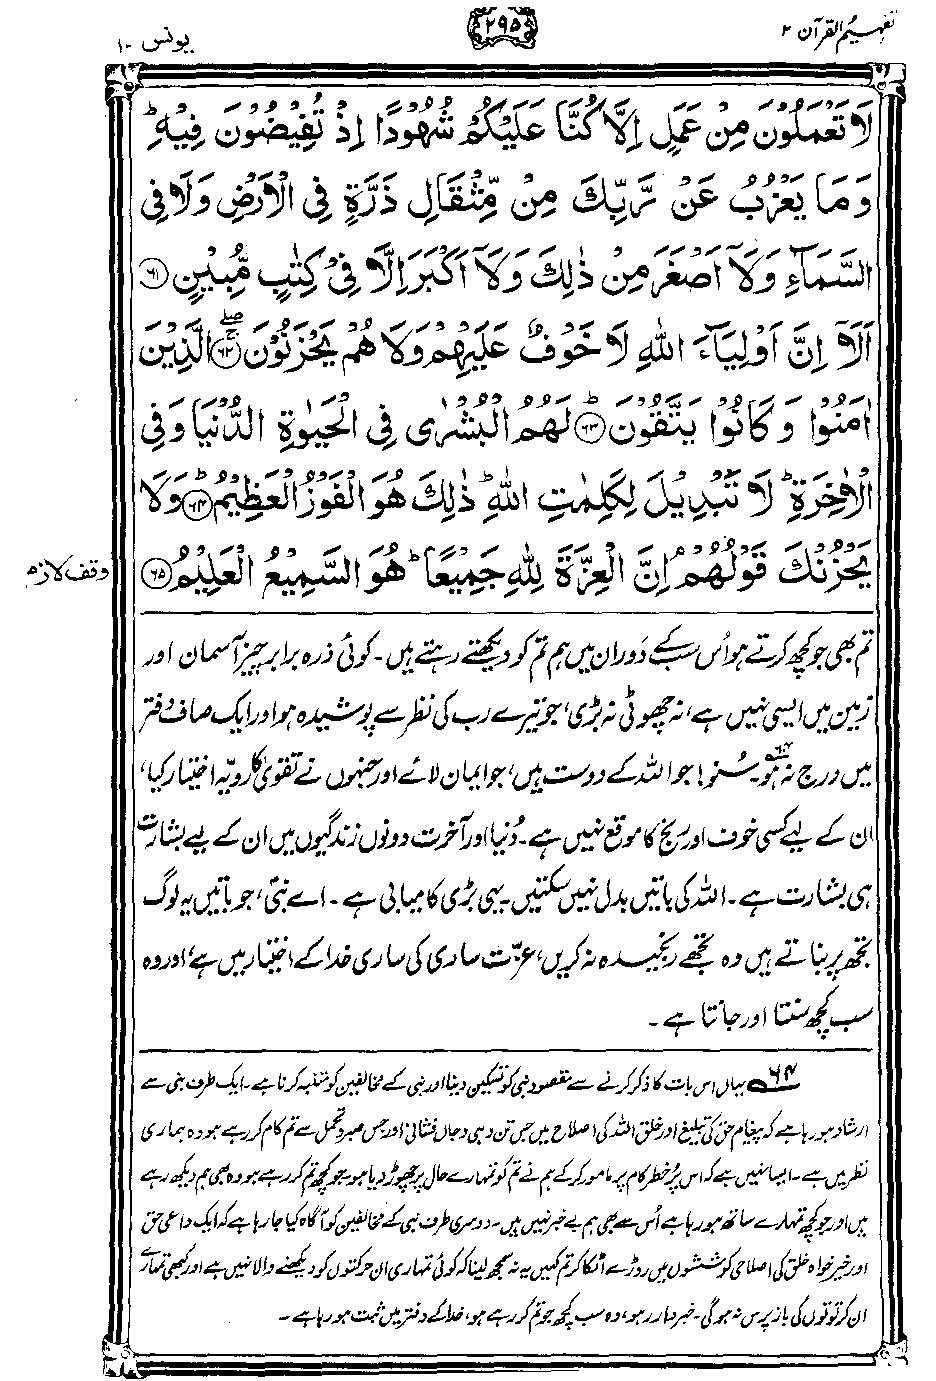 تفہیم القرآن ۲
۲۹۵
یونس ۱۰
لَا تَعْمَلُوْنَ مِنْ عَمَلٍ اِلَّا كُنَّا عَلَيْكُمْ شُهُوْدًا اِذْ تُفِيْضُوْنَ فِيْهِ ؕ
وَمَا يَعْزُبُ عَنْ رَّبِّكَ مِنْ مِّثْقَالِ ذَرَّةٍ فِي الْاَرْضِ وَلَا فِي
السَّمَآءِ وَلَاۤ اَصْغَرَ مِنْ ذٰلِكَ وَلَاۤ اَكْبَرَ اِلَّا فِيْ كِتٰبٍ مُّبِيْنٍ ﴿۶۱﴾
اَلَاۤ اِنَّ اَوْلِيَآءَ اللهِ لَا خَوْفٌ عَلَيْهِمْ وَلَا هُمْ يَحْزَنُوْنَ ﴿۶۲﴾ۚ ۖ الَّذِيْنَ
اٰمَنُوْا وَكَانُوْا يَتَّقُوْنَ ﴿۶۳﴾ؕ لَهُمُ الْبُشْرٰى فِي الْحَيٰوةِ الدُّنْيَا وَفِي
الْاٰخِرَةِ ؕ لَا تَبْدِيْلَ لِكَلِمٰتِ اللهِ ؕ ذٰلِكَ هُوَ الْفَوْزُ الْعَظِيْمُ ﴿۶۴﴾ؕ وَلَا
يَحْزُنْكَ قَوْلُهُمْ ۘ اِنَّ الْعِزَّةَ لِلّٰهِ جَمِيْعًا ؕ هُوَ السَّمِيْعُ الْعَلِيْمُ ﴿۶۵﴾
وقف لازم
تم بھی جو کچھ کرتے ہو اُس سب کے دَوران میں ہم تم کو دیکھتے رہتے ہیں۔ کوئی ذرہ برابر چیز آسمان اور
زمین میں ایسی نہیں ہے، نہ چھوٹی نہ بڑی، جو تیرے رب کی نظر سے پوشیدہ ہو اور ایک صاف دفتر
میں درج نہ ہو۔۶۴ سُنو! جو اللہ کے دوست ہیں، جو ایمان لائے اور جنہوں نے تقویٰ کا رویّہ اختیار کیا،
ان کے لیے کسی خوف اور رنج کا موقع نہیں ہے۔ دُنیا اور آخرت دونوں زندگیوں میں ان کے لیے بشارت
ہی بشارت ہے۔ اللہ کی باتیں بدل نہیں سکتیں۔ یہی بڑی کامیابی ہے۔ اے نبیؐ، جو باتیں یہ لوگ
تجھ پر بناتے ہیں وہ تجھے رنجیدہ نہ کریں، عزّت ساری کی ساری خدا کے اختیار میں ہے، اور وہ
سب کچھ سنتا اور جانتا ہے۔
۶۴ یہاں اس بات کا ذکر کرنے سے مقصود نبی کو تسکین دینا اور نبی کے مخالفین کو متنبہ کرنا ہے۔ ایک طرف نبی سے
ارشاد ہو رہا ہے کہ پیغامِ حق کی تبلیغ اور خلق اللہ کی اصلاح میں جس تن دہی و جاں فشانی اور جس صبر و تحمل سے تم کام کر رہے ہو وہ ہماری
نظر میں ہے۔ ایسا نہیں ہے کہ اس پُر خطر کام پر مامور کر کے ہم نے تم کو تمہارے حال پر چھوڑ دیا ہو۔ جو کچھ تم کر رہے ہو وہ بھی ہم دیکھ رہے
ہیں اور جو کچھ تمہارے ساتھ ہو رہا ہے اُس سے بھی ہم بے خبر نہیں ہیں۔ دوسری طرف نبی کے مخالفین کو آگاہ کیا جا رہا ہے کہ ایک داعیِ حق
اور خیر خواہِ خلق کی اصلاحی کوششوں میں روڑے اٹکا کر تم کہیں یہ نہ سمجھ لینا کہ کوئی تمہاری ان حرکتوں کو دیکھنے والا نہیں ہے اور کبھی تمہارے
ان کرتوتوں کی باز پرس نہ ہوگی۔ خبردار رہو، وہ سب کچھ جو تم کر رہے ہو، خدا کے دفتر میں ثبت ہو رہا ہے۔